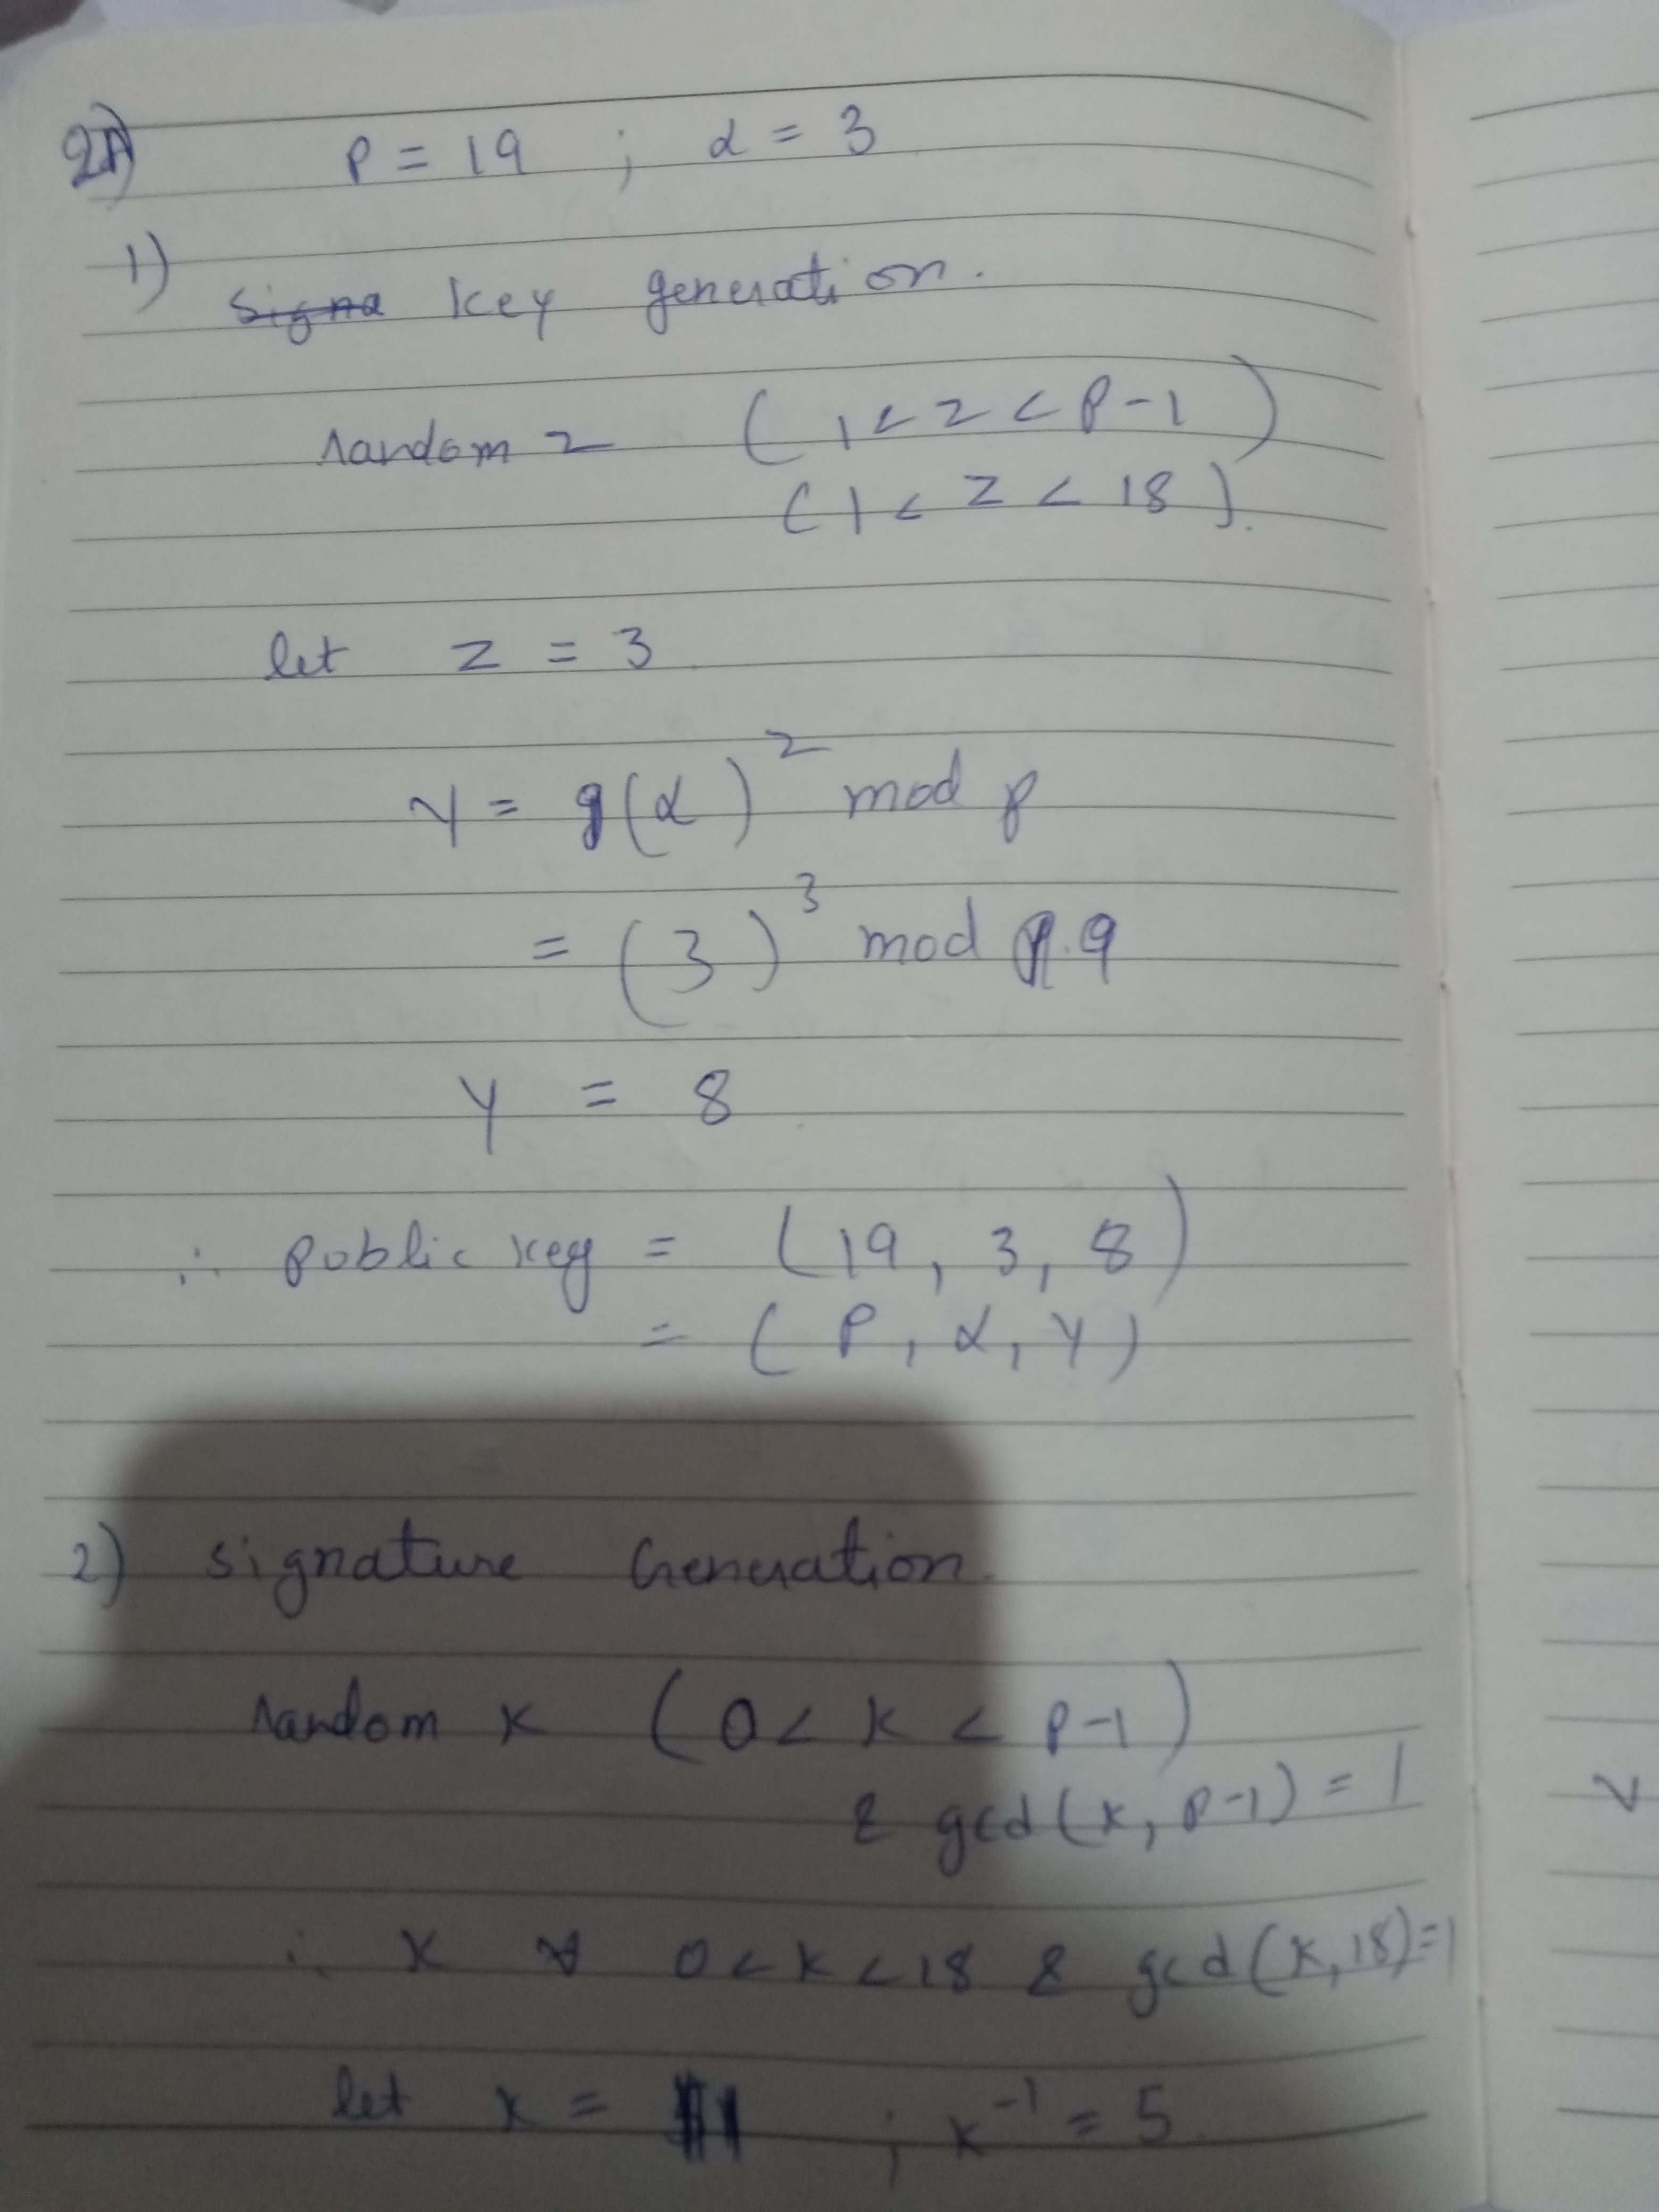 2A) P = 19 ; α = 3
1) Signa key generation.
random z ( 1 < z < P-1 )
( 1 < z < 18 ).
let z = 3
Y = g(α)^z mod p
= (3)^3 mod 19
Y = 8
∴ public key = (19, 3, 8)
= ( P, α, Y )
2) signature Generation.
random k ( 0 < k < p-1 )
& gcd(k, p-1) = 1
∴ k ∀ 0 < k < 18 & gcd(k, 18) = 1
let k = 11 ; k^-1 = 5